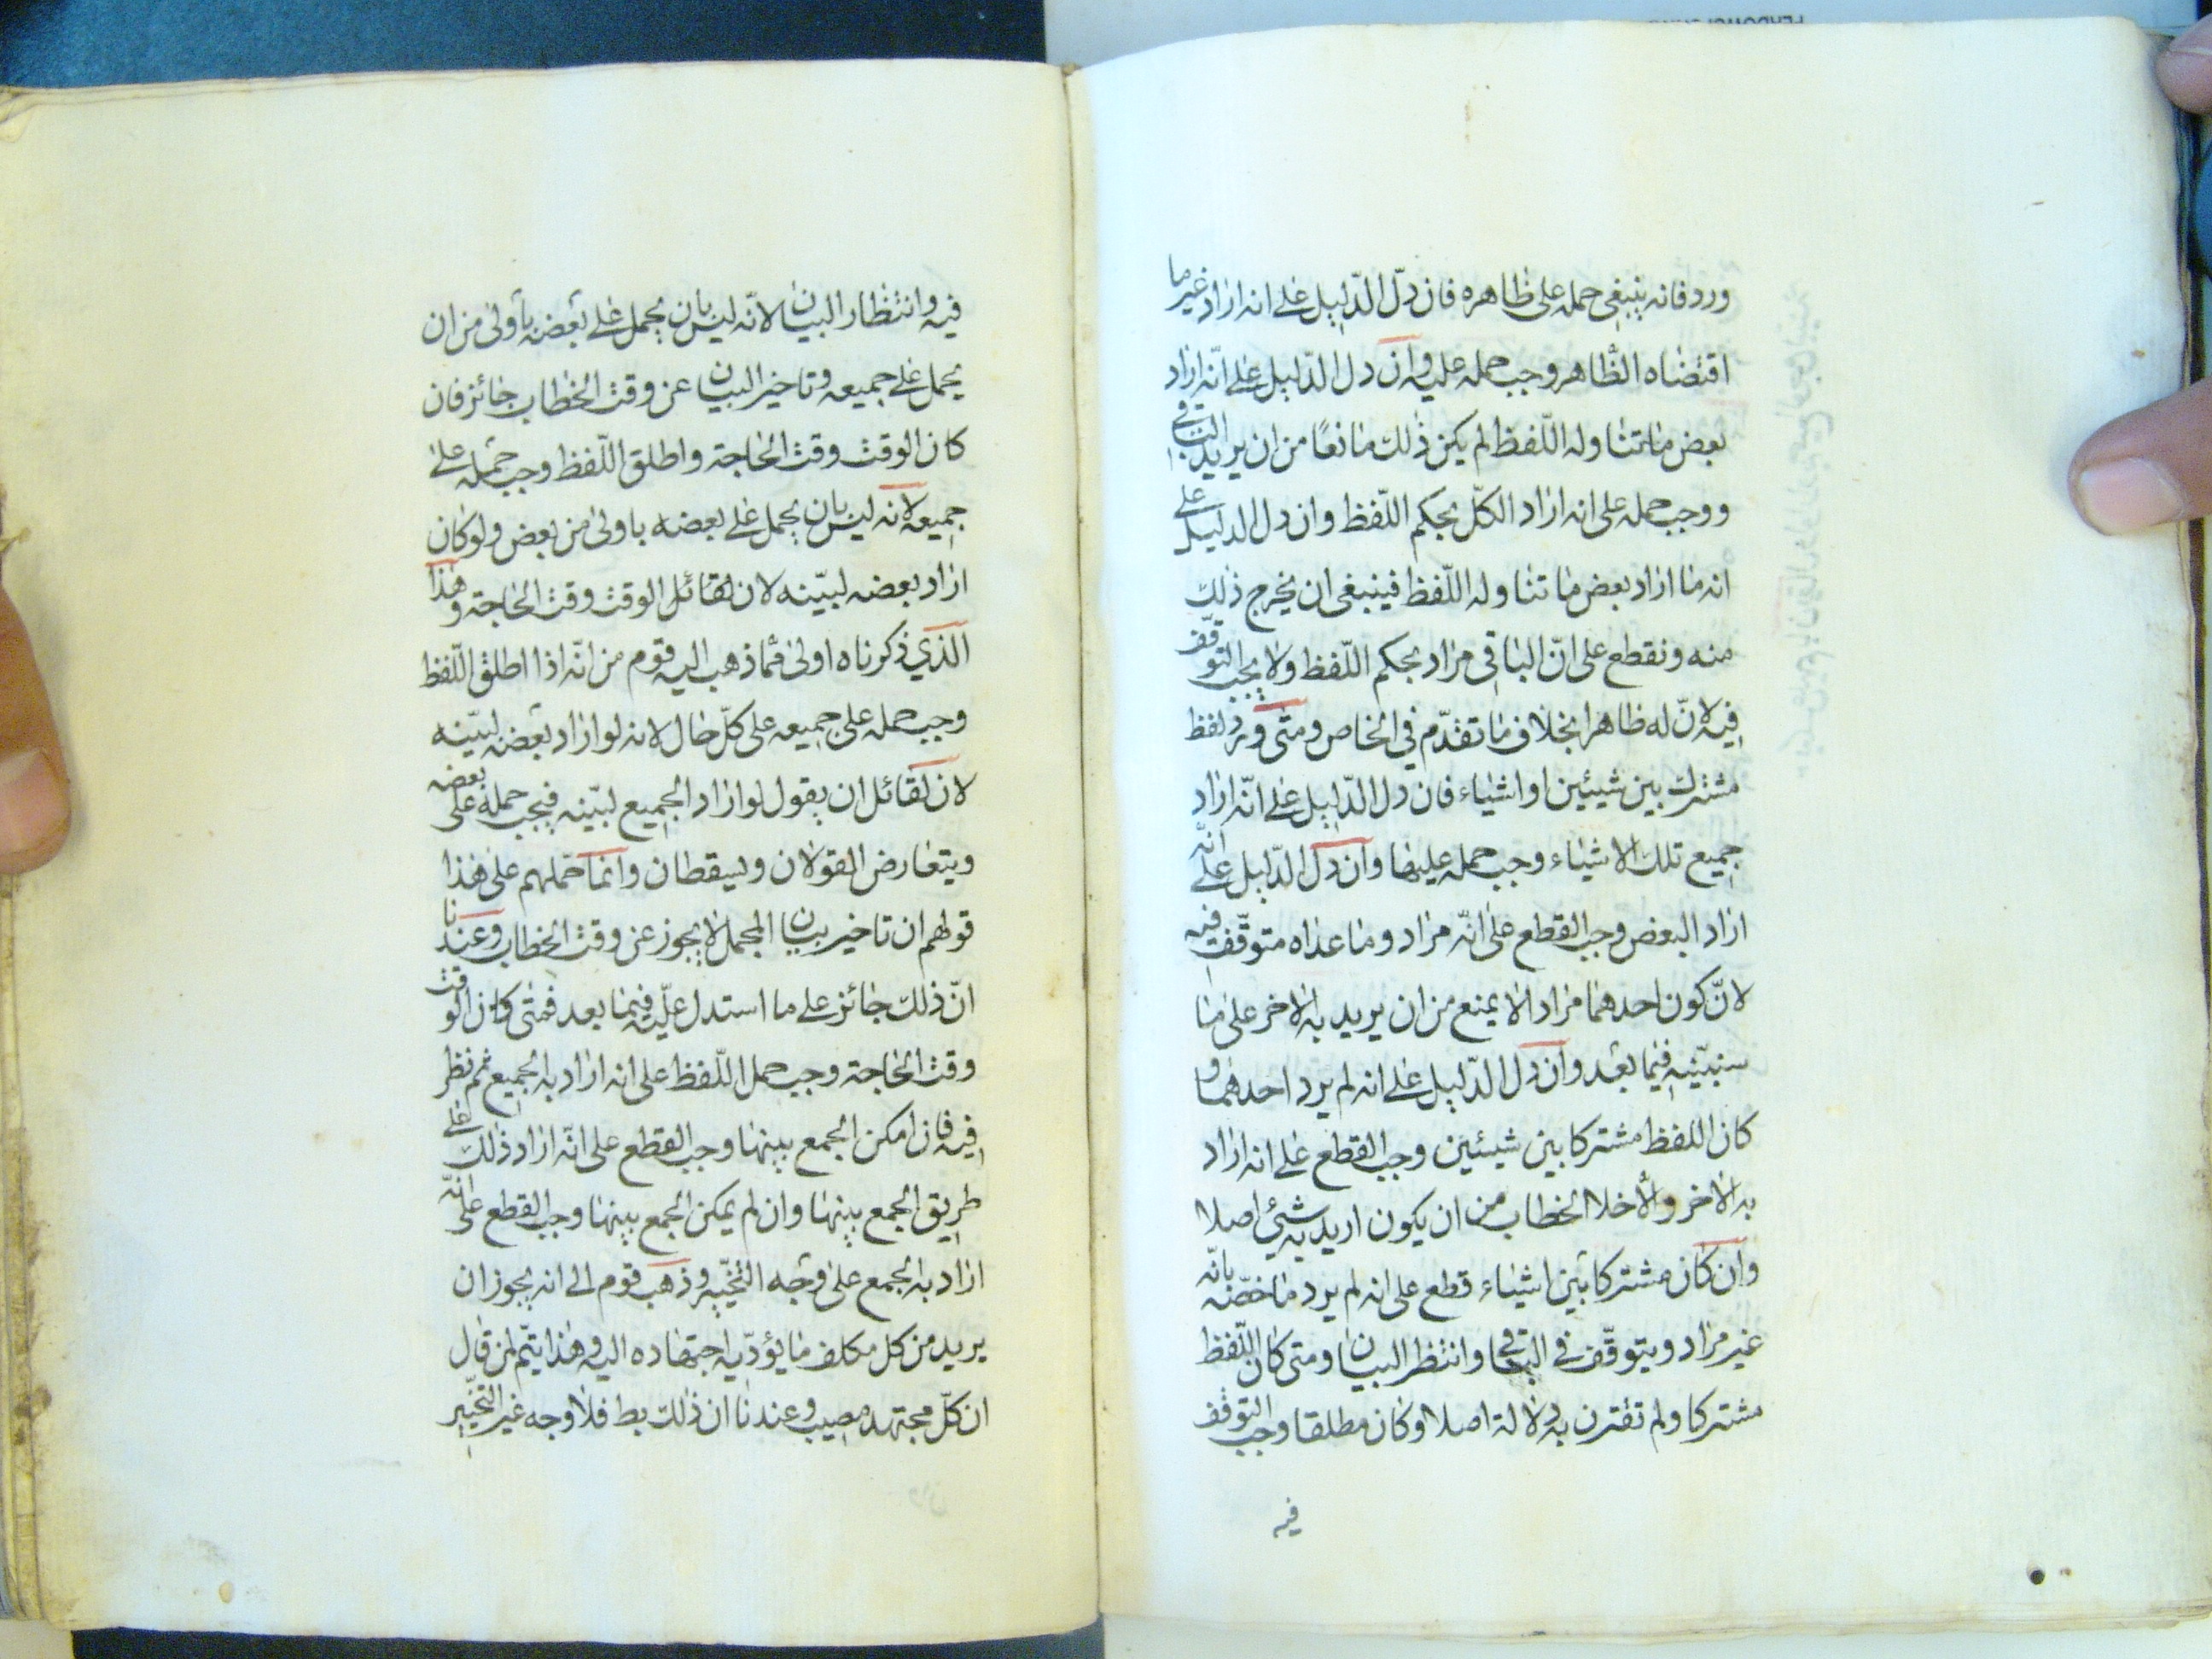 ورد فانه ينبغى حمله على ظاهره فان دلّ الدّليل على انه اراد غير ما
اقتضاه الظّاهر وجب حمله عليه وان دل الدّليل على انّه اراد
بعض ما تناوله اللّفظ لم يكن ذلك مانعًا من ان يريد الباقى
ووجب حمله على انه اراد الكلّ بحكم اللّفظ وان دل الدليل على
انه ما اراد بعض ما تناوله اللّفظ فينبغى ان يخرج ذلك
منه ونقطع على انّ الباقى مراد بحكم اللّفظ ولا يجب التوقّف
فيه لانّ له ظاهرا بخلاف ما تقدّم في الخاص ومتى ورد لفظ
مشترك بين شيئين او اشياء فان دل الدّليل على انّه اراد
جميع تلك الاشياء وجب حمله عليها وان دل الدّليل على انّه
اراد البعض وجب القطع على انّه مراد وما عداه متوقّف فيه
لانّ كون احدهما مرادا لا يمنع من ان يريد به الاخر على ما
سنبيّنه فيما بعد وان دل الدّليل على انه لم يرد احدهما و
كان اللفظ مشتركا بين شيئين وجب القطع على انه اراد
به الاخر والّا خلا الخطاب من ان يكون اريد به شئ اصلا
وان كان مشتركا بين اشياء قطع على انه لم يرد ما خصّه بانّه
غير مراد ويتوقّف في الباقى وانتظر البيان ومتى كان اللّفظ
مشتركا ولم تقترن به دلالة اصلا وكان مطلقا وجب التوقف
فيه
فيه وانتظار البيان لانّه ليس بان يحمل على بعضه باولى من ان
يحمل على جميعه وتاخير البيان عن وقت الخطاب جائز فان
كان الوقت وقت الحاجة واطلق اللّفظ وجب حمله على
جميعه لانه ليس بان يحمل على بعضه باولى من بعض ولو كان
اراد بعضه لبيّنه لان لقائل الوقت وقت الحاجة وهذا
الذي ذكرناه اولى ممّا ذهب اليه قوم من انّه اذا اطلق اللّفظ
وجب حمله على جميعه على كلّ حال لانه لو اراد بعضه لبيّنه
لان لقائل ان يقول لو اراد الجميع لبيّنه فيجب حمله على بعضه
ويتعارض القولان ويسقطان وانما حملهم على هذا
قولهم ان تاخير بيان المجمل لا يجوز عن وقت الخطاب وعندنا
انّ ذلك جائز على ما استدل عليه فيما بعد فمتى كان الوقت
وقت الحاجة وجب حمل اللّفظ على انه اراد به الجميع ثم نظر
فيه فان امكن الجمع بينها وجب القطع على انّه اراد ذلك على
طريق الجمع بينها وان لم يمكن الجمع بينها وجب القطع على انّه
اراد به الجمع على وجه التخيير وذهب قوم الى انه يجوز ان
يريد من كل مكلف ما يؤدّيه اجتهاده اليه وهذا يتمّ لمن قال
ان كلّ مجتهد مصيب وعندنا ان ذلك بط فلا وجه غير التخيير